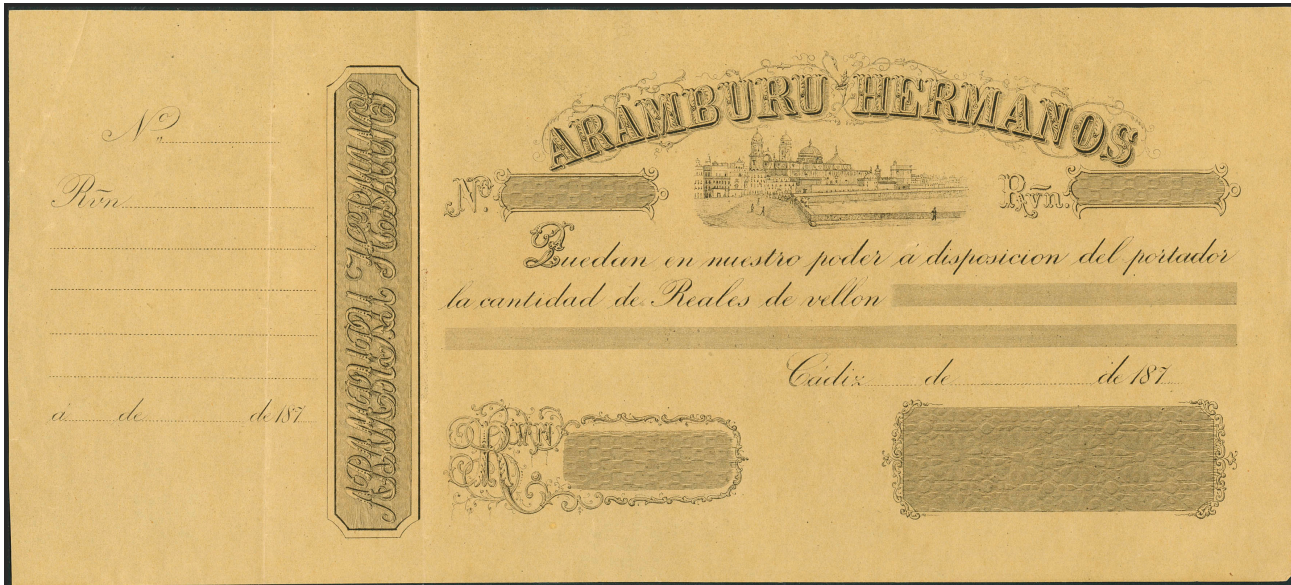 Nº
Rvn.
á de de 187
ARAMBURU HERMANOS
ARAMBURU HERMANOS
Nº
Rvn.
Quedan en nuestro poder a disposicion del portador
la cantidad de Reales de vellon
Cádiz de de 187
Son Rvn.